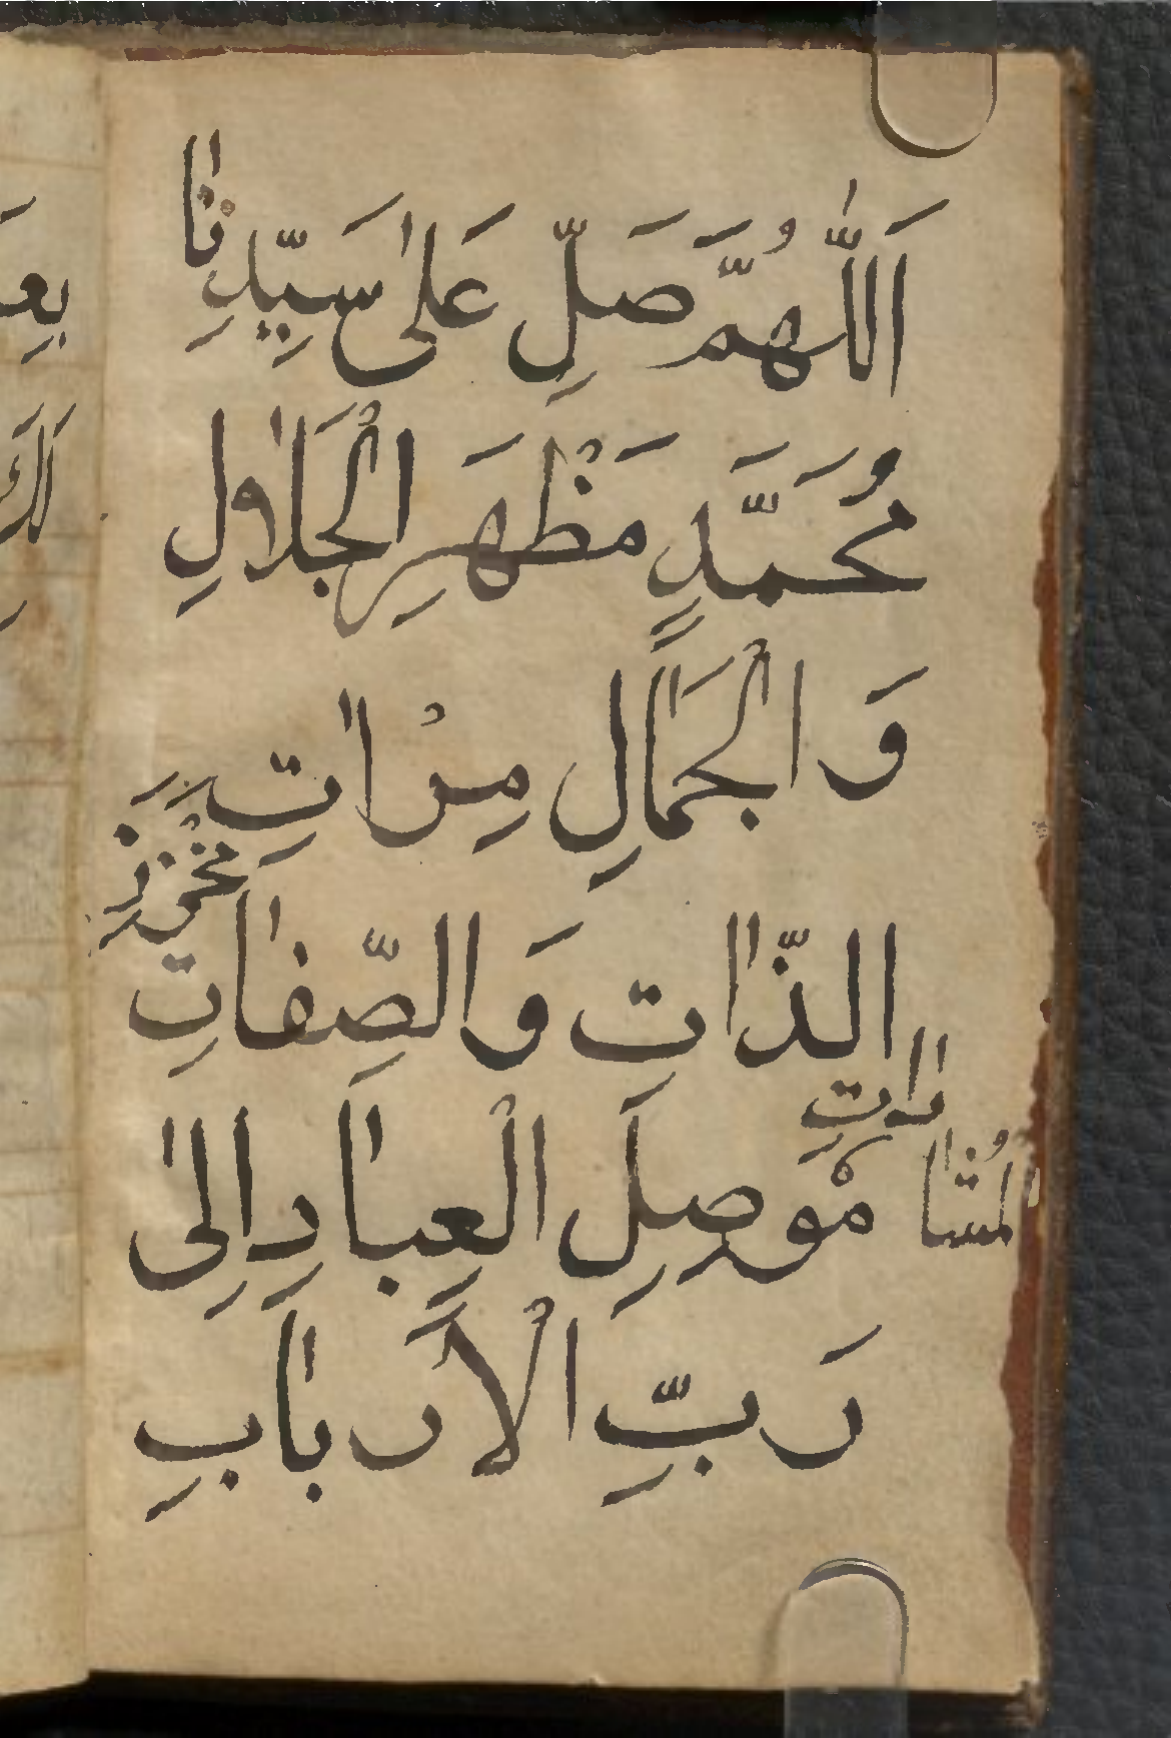 اَللّٰهُمَّ صَلِّ عَلٰى سَيِّدِنَا
مُحَمَّدٍ مَظْهَرِ الْجَلَاولِ
وَ الْجَمَالِ مِرْاتِ
الذّاتِ وَالصِّفَاتِ
مَوْصِلِ الْعِبَادِ اِلٰى
رَبِّ الْاَرْبَابِ